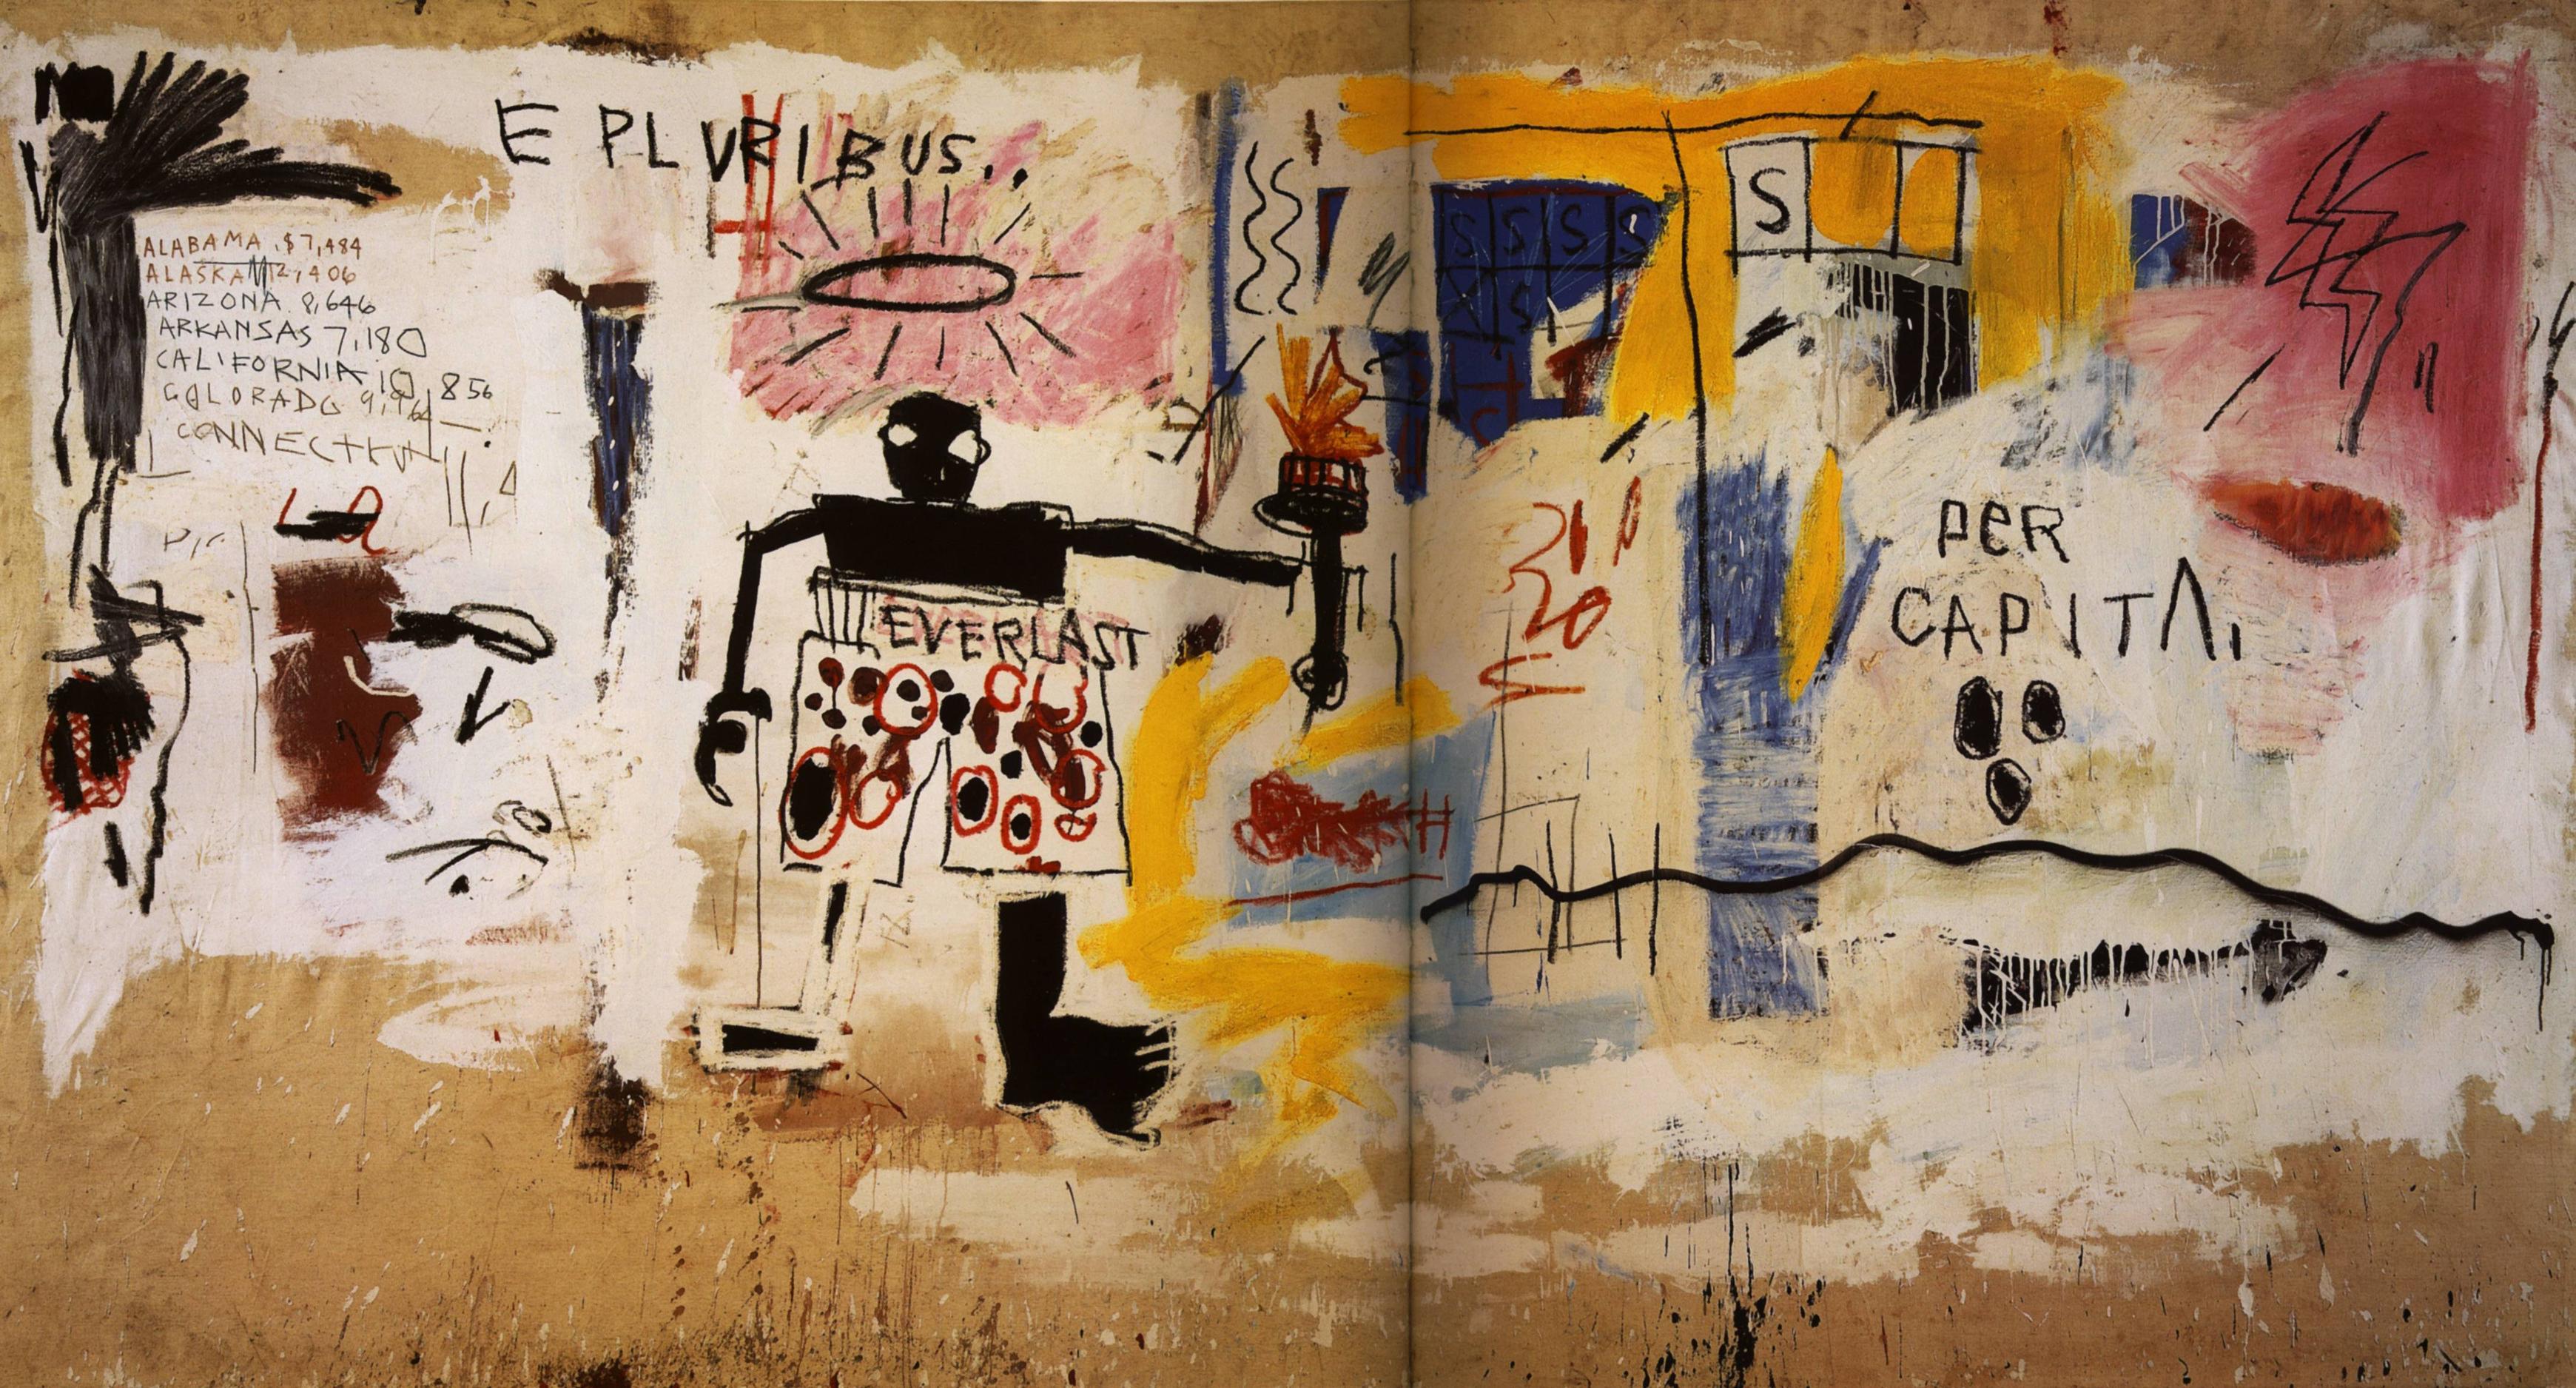 E PLURIBUS..
ALABAMA .$7,484
ALASKA 12,406
ARIZONA 8,646
ARKANSAS 7,180
CALIFORNIA 10,856
COLORADO
EVERLAST
S S S S
S
S
PER
CAPITA,